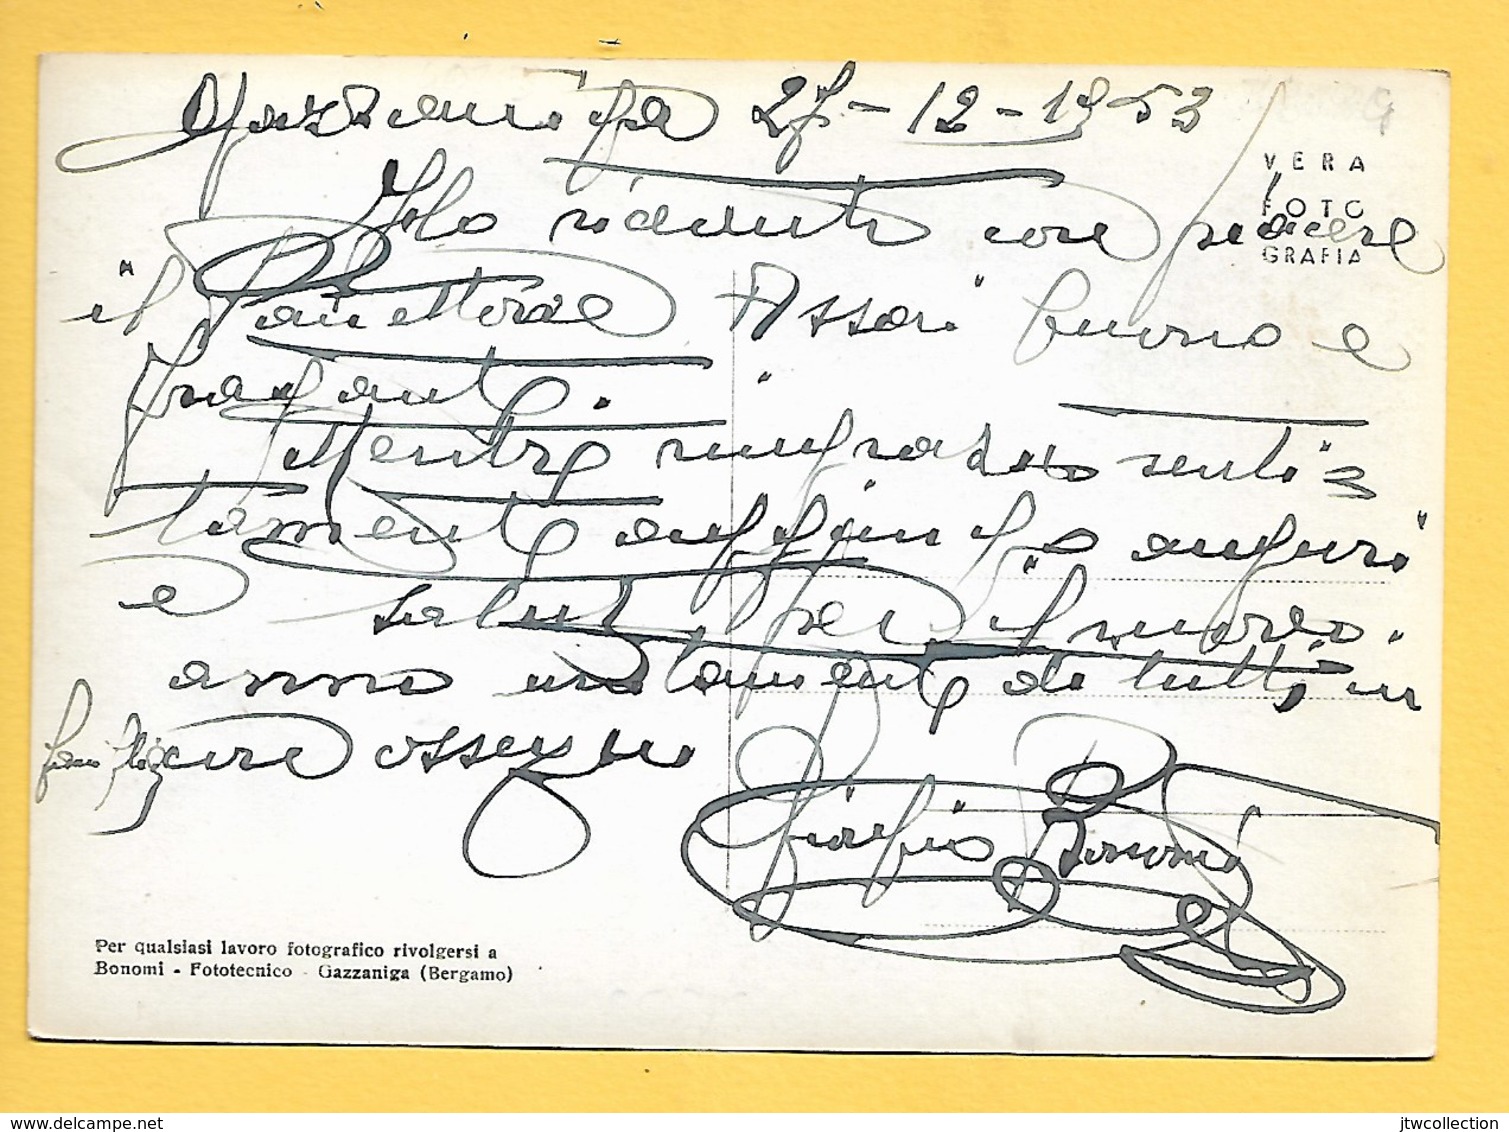 Gazzaniga 27-12-1953
VERA
FOTO
GRAFIA
Ho ricevuto con piacere
il Panettone Assai buono e
fragante.
Mentre ringrazio senti=
tamente auguri
e saluti per il nuovo
anno unitamente di tutti in
famiglia ossequi
Giorgio Bonomi
Per qualsiasi lavoro fotografico rivolgersi a
Bonomi - Fototecnico - Gazzaniga (Bergamo)
delcampe.net
jtwcollection